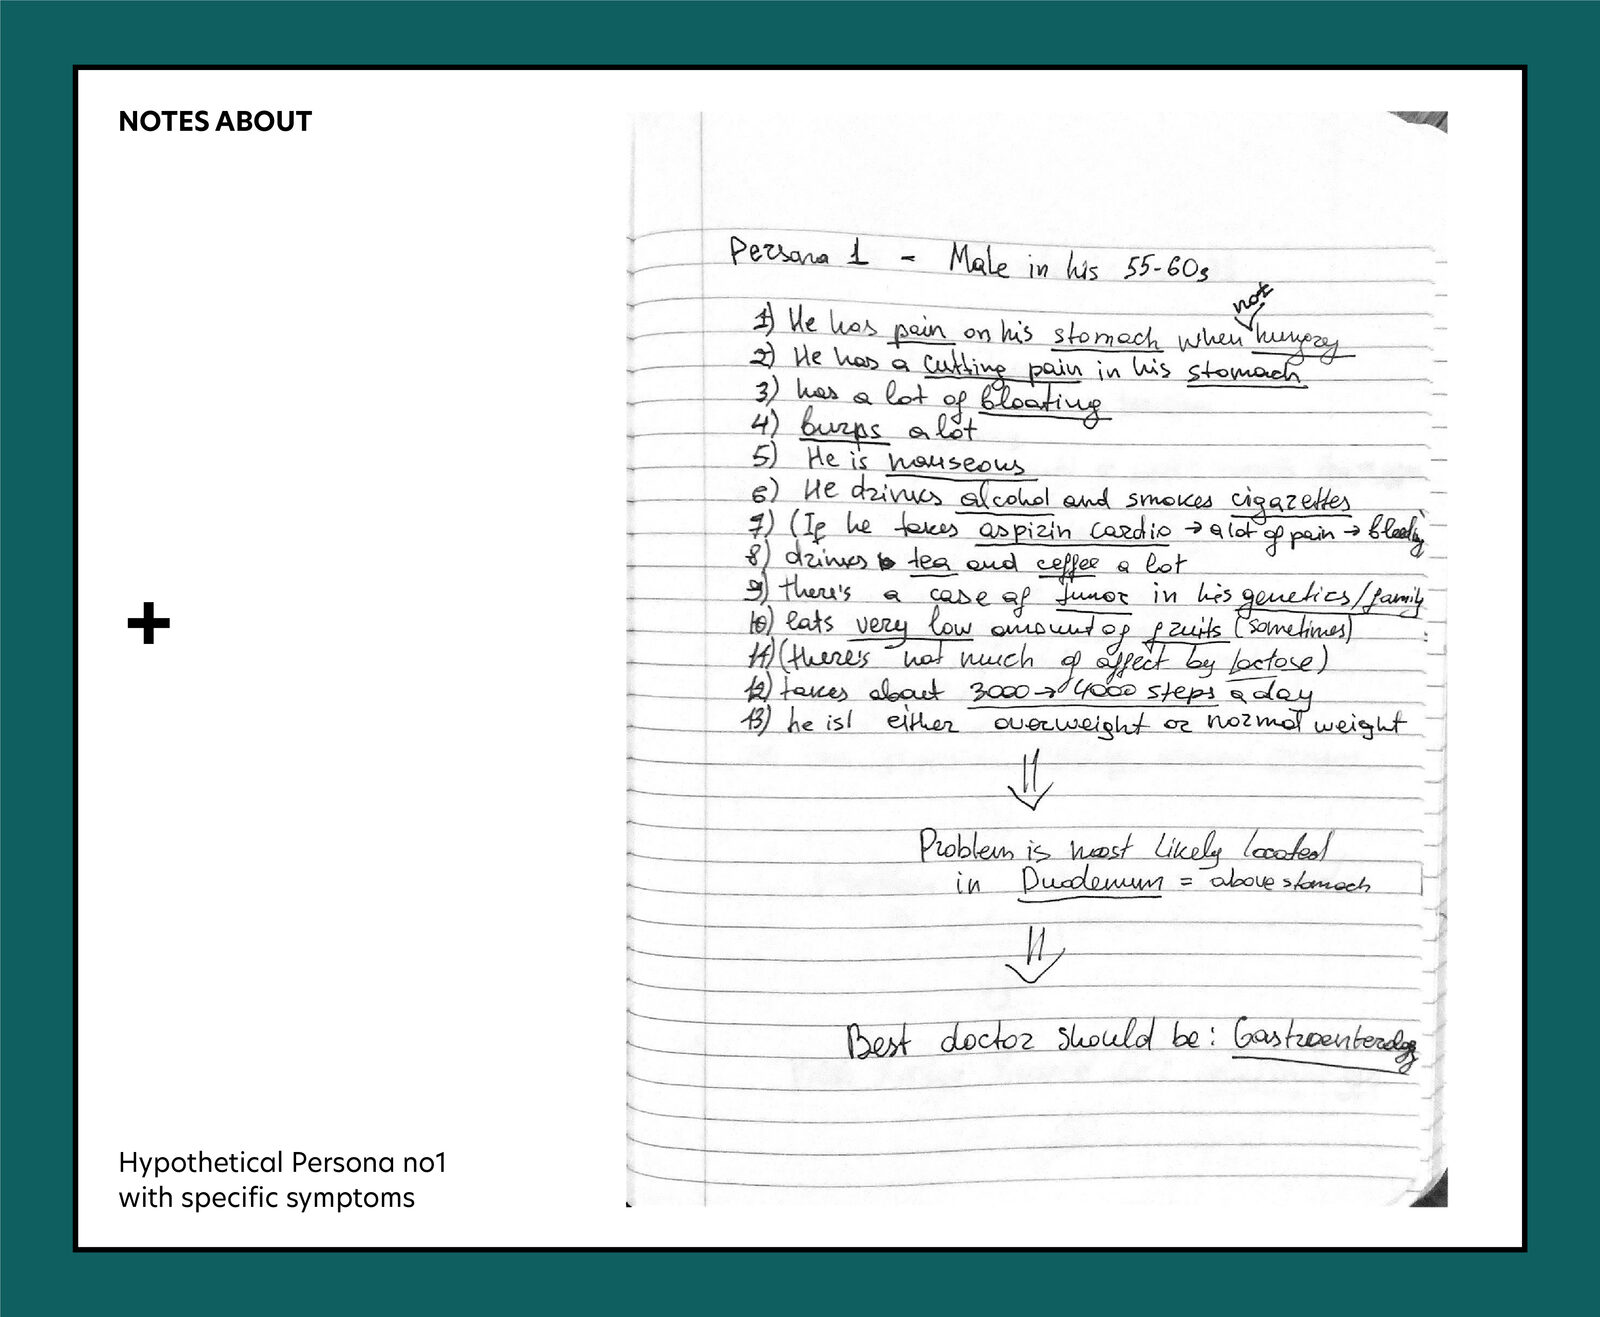 NOTES ABOUT
Persona 1 - Male in his 55-60s
not
1) He has pain on his stomach when hungry
2) He has a cutting pain in his stomach
3) has a lot of bloating
4) burps a lot
5) He is nauseous
6) He drinks alcohol and smokes cigarettes
7) (If he takes aspirin cardio → a lot of pain → bleedig
8) drinks tea and coffee a lot
9) there's a case of tumor in his genetics/family
10) eats very low amount of fruits (sometimes)
11) (there's not much of affect by lactose)
12) takes about 3000→4000 steps a day
13) he is! either overweight or normal weight
Problem is most likely located
in Duodenum = above stomach
Best doctor should be: Gastroenterolog
+
Hypothetical Persona no1
with specific symptoms